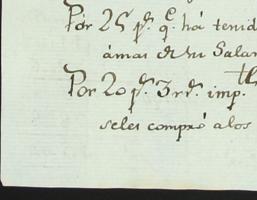 Por 25 p.^s q.^e há tenid
ámas de su Salar
Por 20 p.^s 3 r.^s imp.^tt
seles compró alos